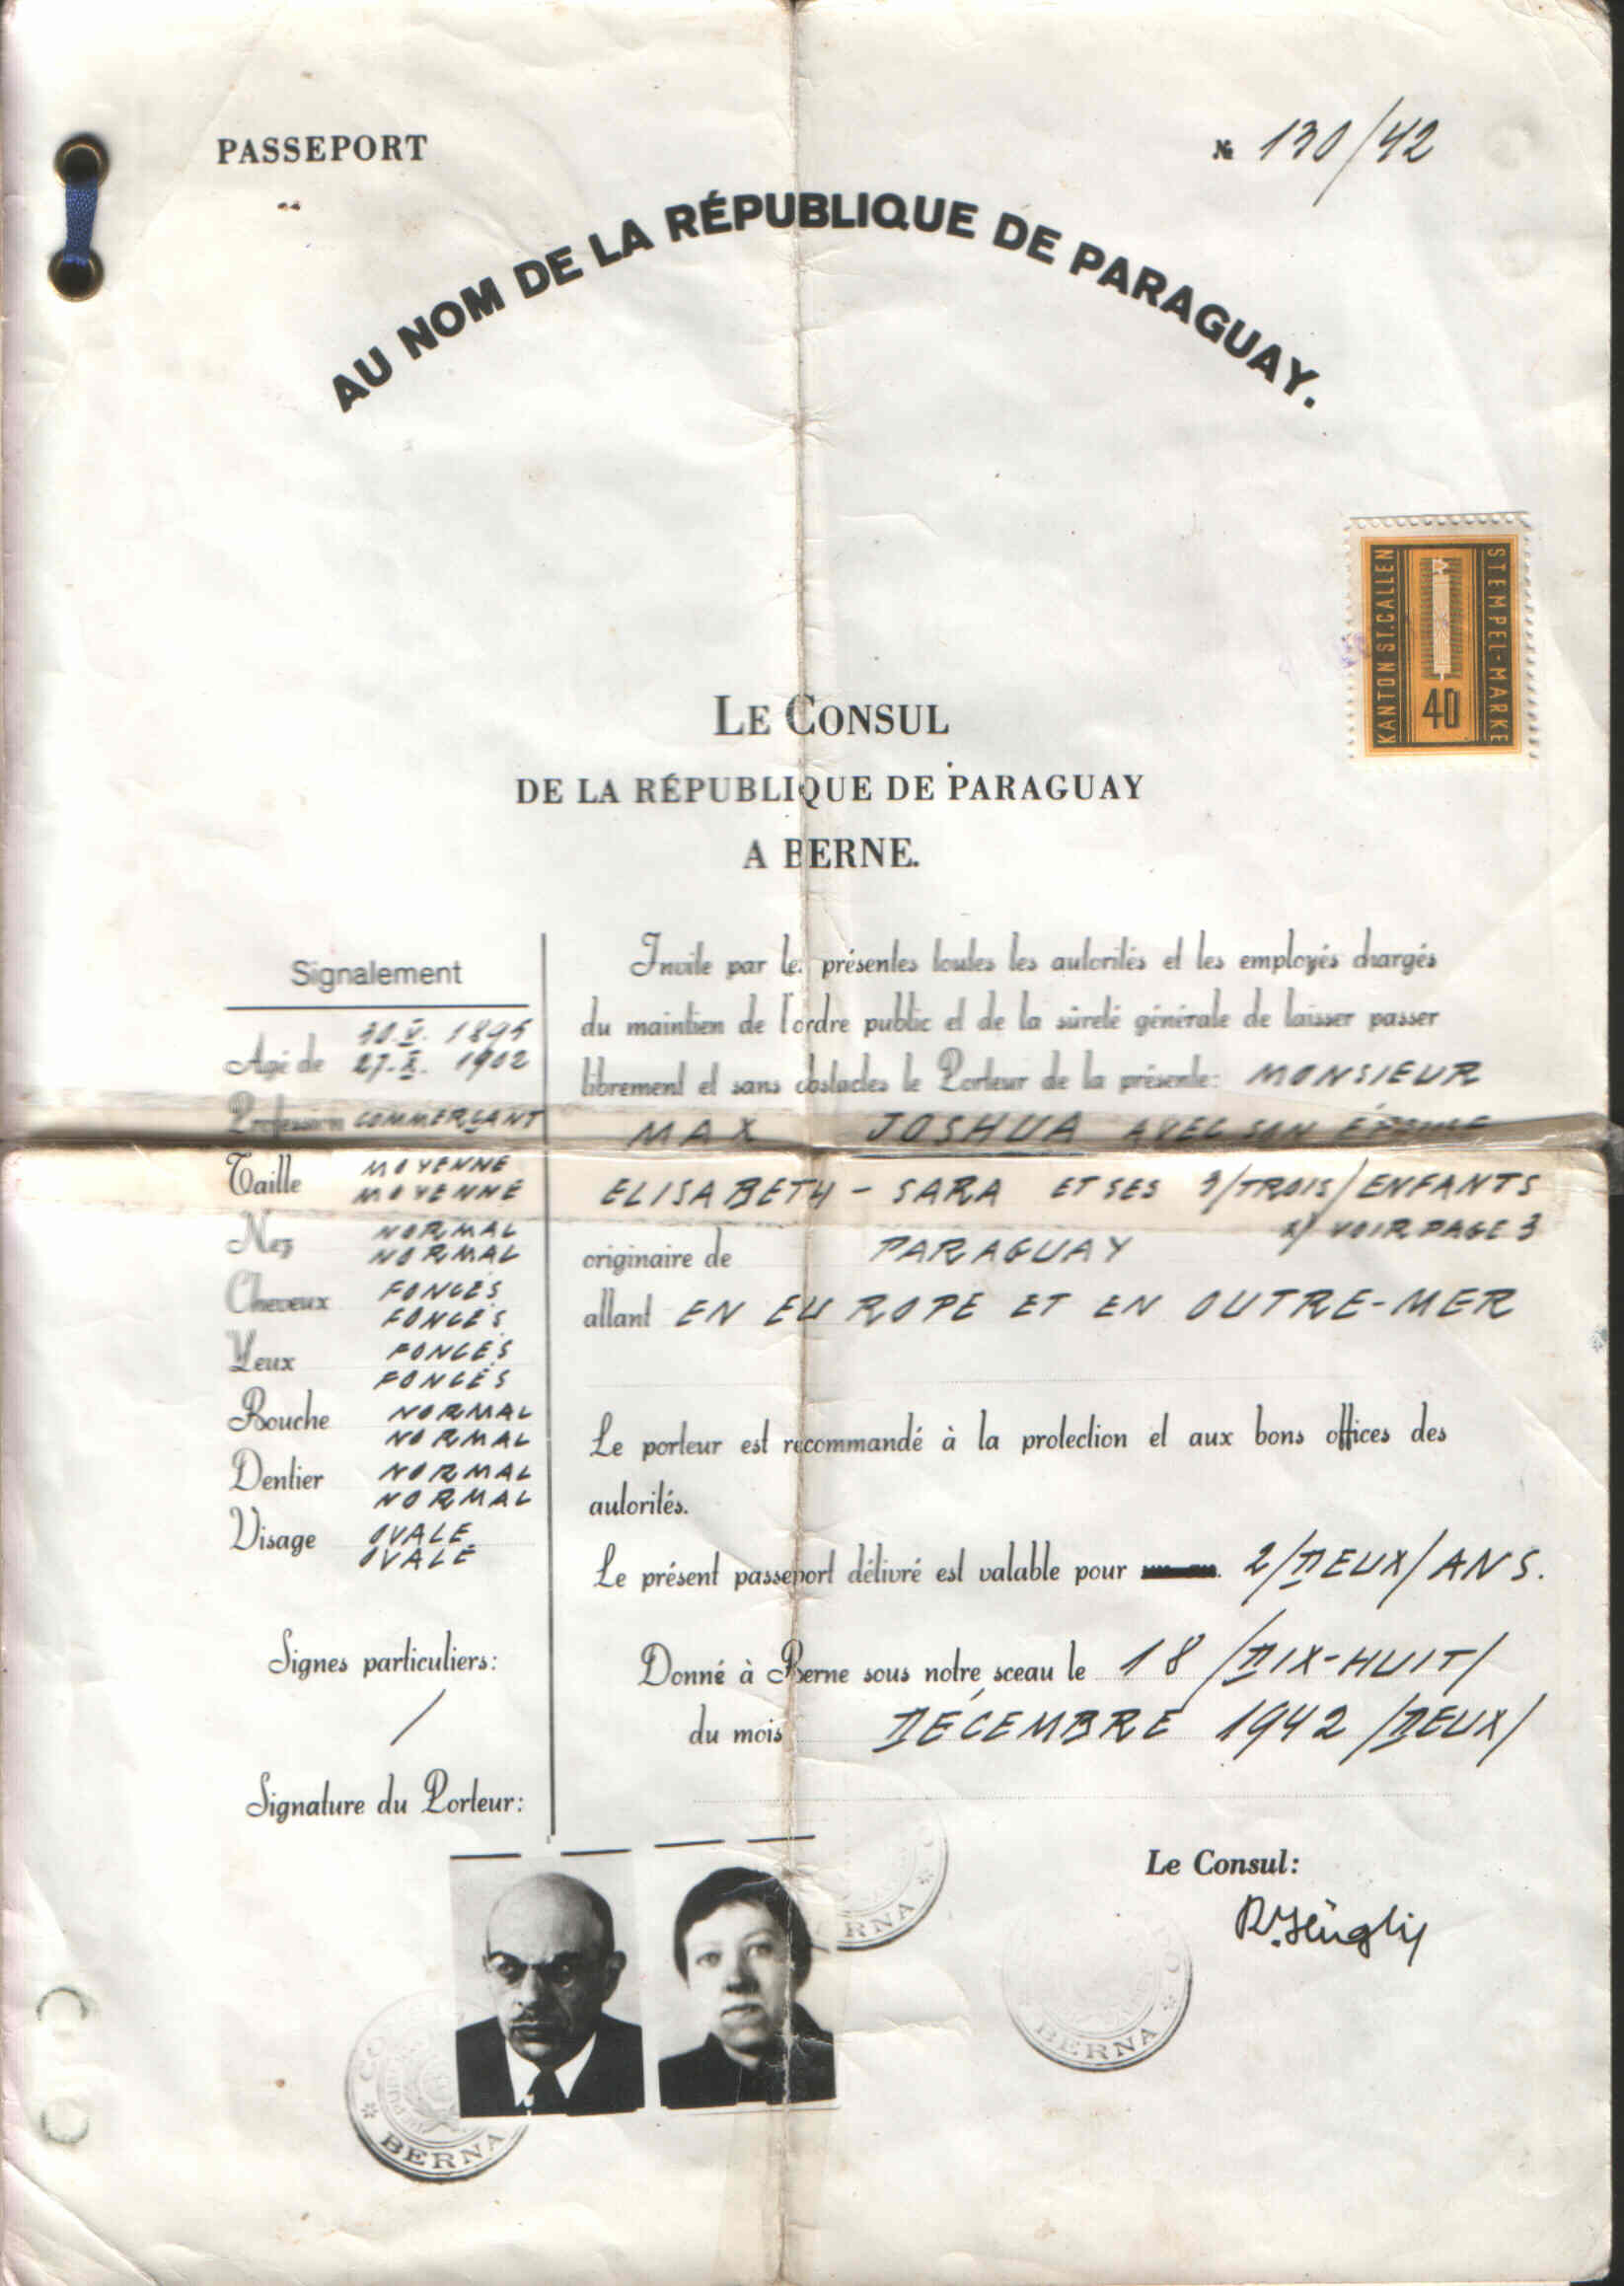 PASSEPORT
№ 130/42
AU NOM DE LA RÉPUBLIQUE DE PARAGUAY.
KANTON ST.GALLEN
STEMPEL-MARKE
40
LE CONSUL
DE LA RÉPUBLIQUE DE PARAGUAY
A BERNE.
Signalement
Agé de 30.V. 1895
27.X. 1902
Profession COMMERÇANT
Taille MOYENNE
MOYENNE
Nez NORMAL
NORMAL
Cheveux FONCÉS
FONCÉS
Yeux FONCÉS
FONCÉS
Bouche NORMAL
NORMAL
Dentier NORMAL
NORMAL
Visage OVALE
OVALE
Signes particuliers:
/
Signature du Porteur:
Invite par les présentes toutes les autorités et les employés chargés
du maintien de l'ordre public et de la sûreté générale de laisser passer
librement et sans obstacles le Porteur de la présente: MONSIEUR
MAX JOSHUA AVEC SON ÉPOUSE
ELISABETH - SARA ET SES 3/TROIS/ENFANTS
x/ VOIR PAGE 3
originaire de PARAGUAY
allant EN EUROPE ET EN OUTRE-MER
Le porteur est recommandé à la protection et aux bons offices des
autorités.
Le présent passeport délivré est valable pour 2/DEUX/ANS.
Donné à Berne sous notre sceau le 18 /DIX-HUIT/
du mois DÉCEMBRE 1942 /DEUX/
Le Consul:
R. Hügli
BERNA
BERNA